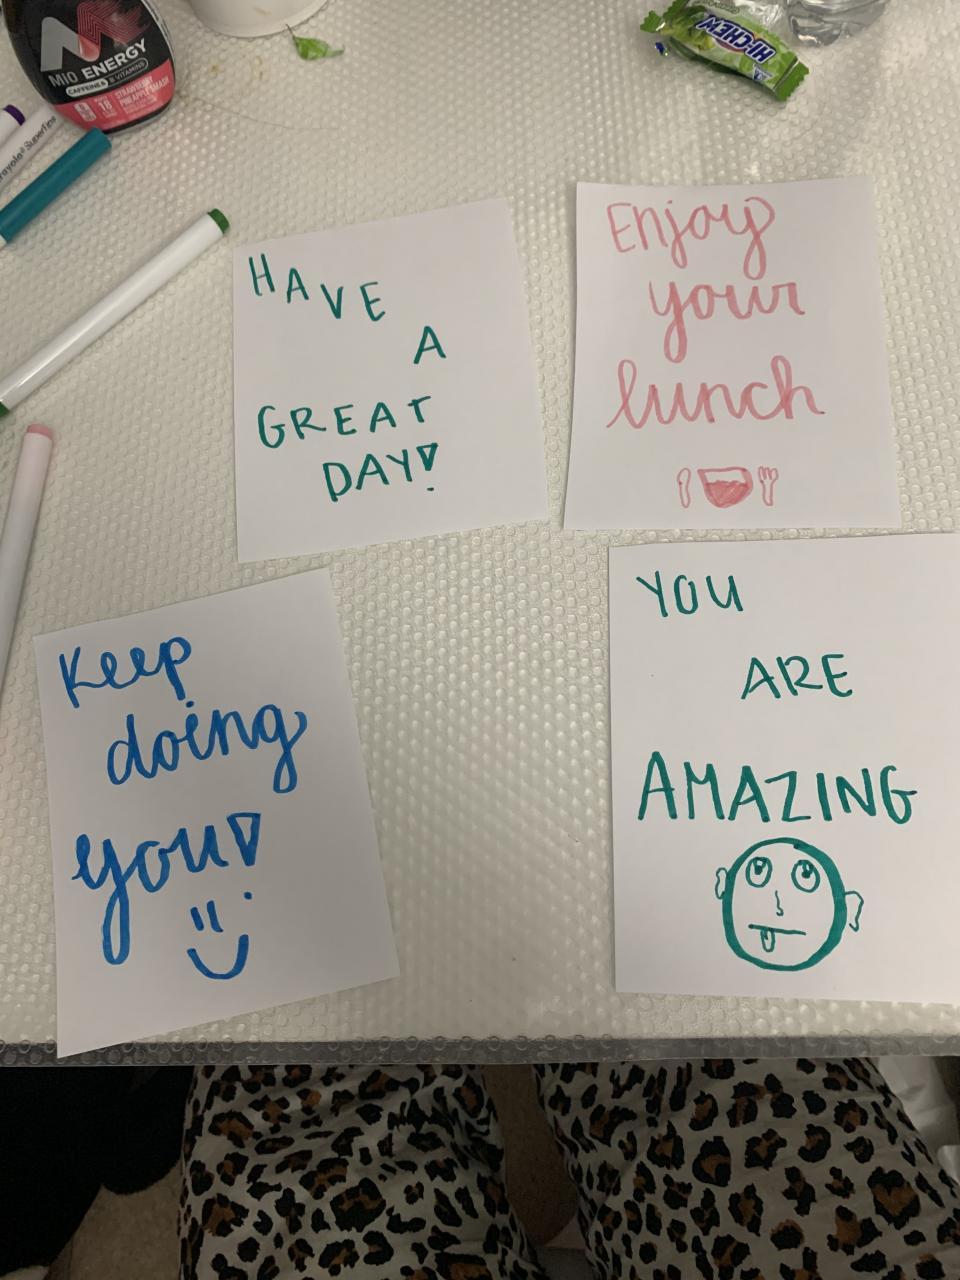 MiO ENERGY
CAFFEINE & B VITAMINS
18
STRAWBERRY
PINEAPPLE SMASH
HI-CHEW
Crayola SuperTips
HAVE
A
GREAT
DAY!
Enjoy
your
lunch
Keep
doing
you!
YOU
ARE
AMAZING